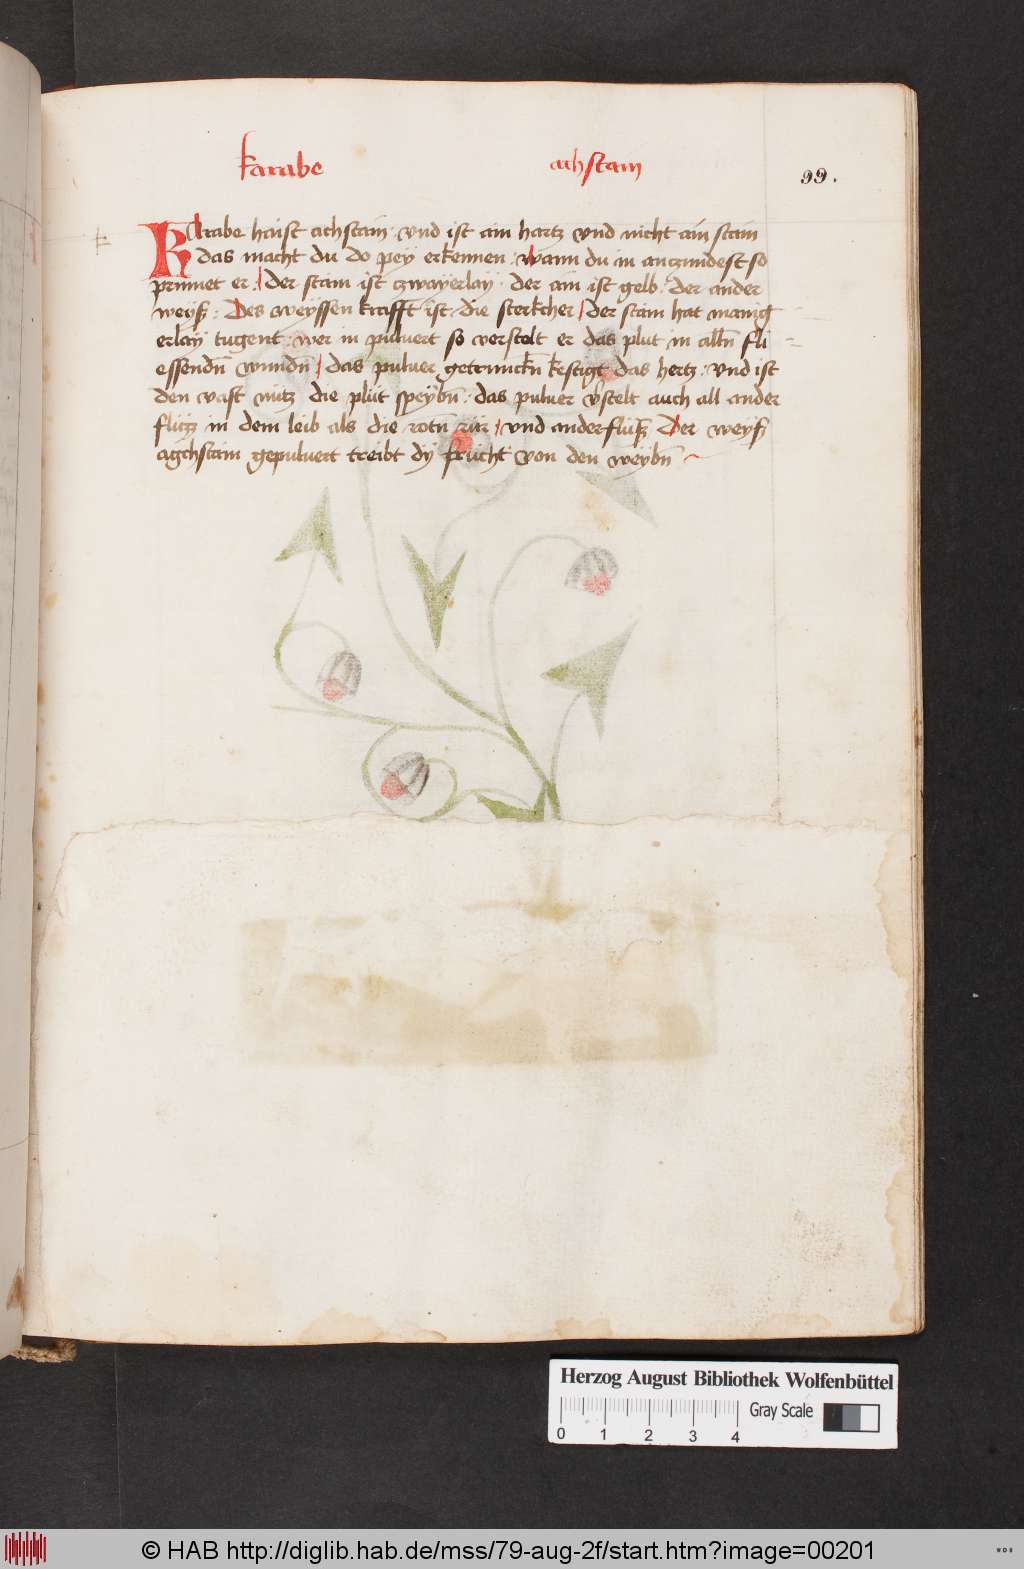 karabe achstain 99.
Karabe haist achstain · vnd ist ain hartz vnd nicht ain stain
das macht du do pey erkennen · wann du in anczundest so
prinnet er · der stain ist czwayerlay · der ain ist gelb · der ander
weyß · Des weyssen krafft ist die sterkcher der stain hat manig
erlay tugent · wer in puluert so verstelt er das plut in alln̄ fli
essendn̄ wundn̄ das puluer getrunckn̄ kestigt das hertz · vnd ist
den vast nütz die plüt speybn̄ · das puluer vstelt auch all ander
flüzz in dem leib als die rotn̄ rür vnd ander flüß Der weyß
agchstain gepuluert treibt dy frücht von den weybn̄
Herzog August Bibliothek Wolfenbüttel
Gray Scale
0 1 2 3 4
© HAB http://diglib.hab.de/mss/79-aug-2f/start.htm?image=00201